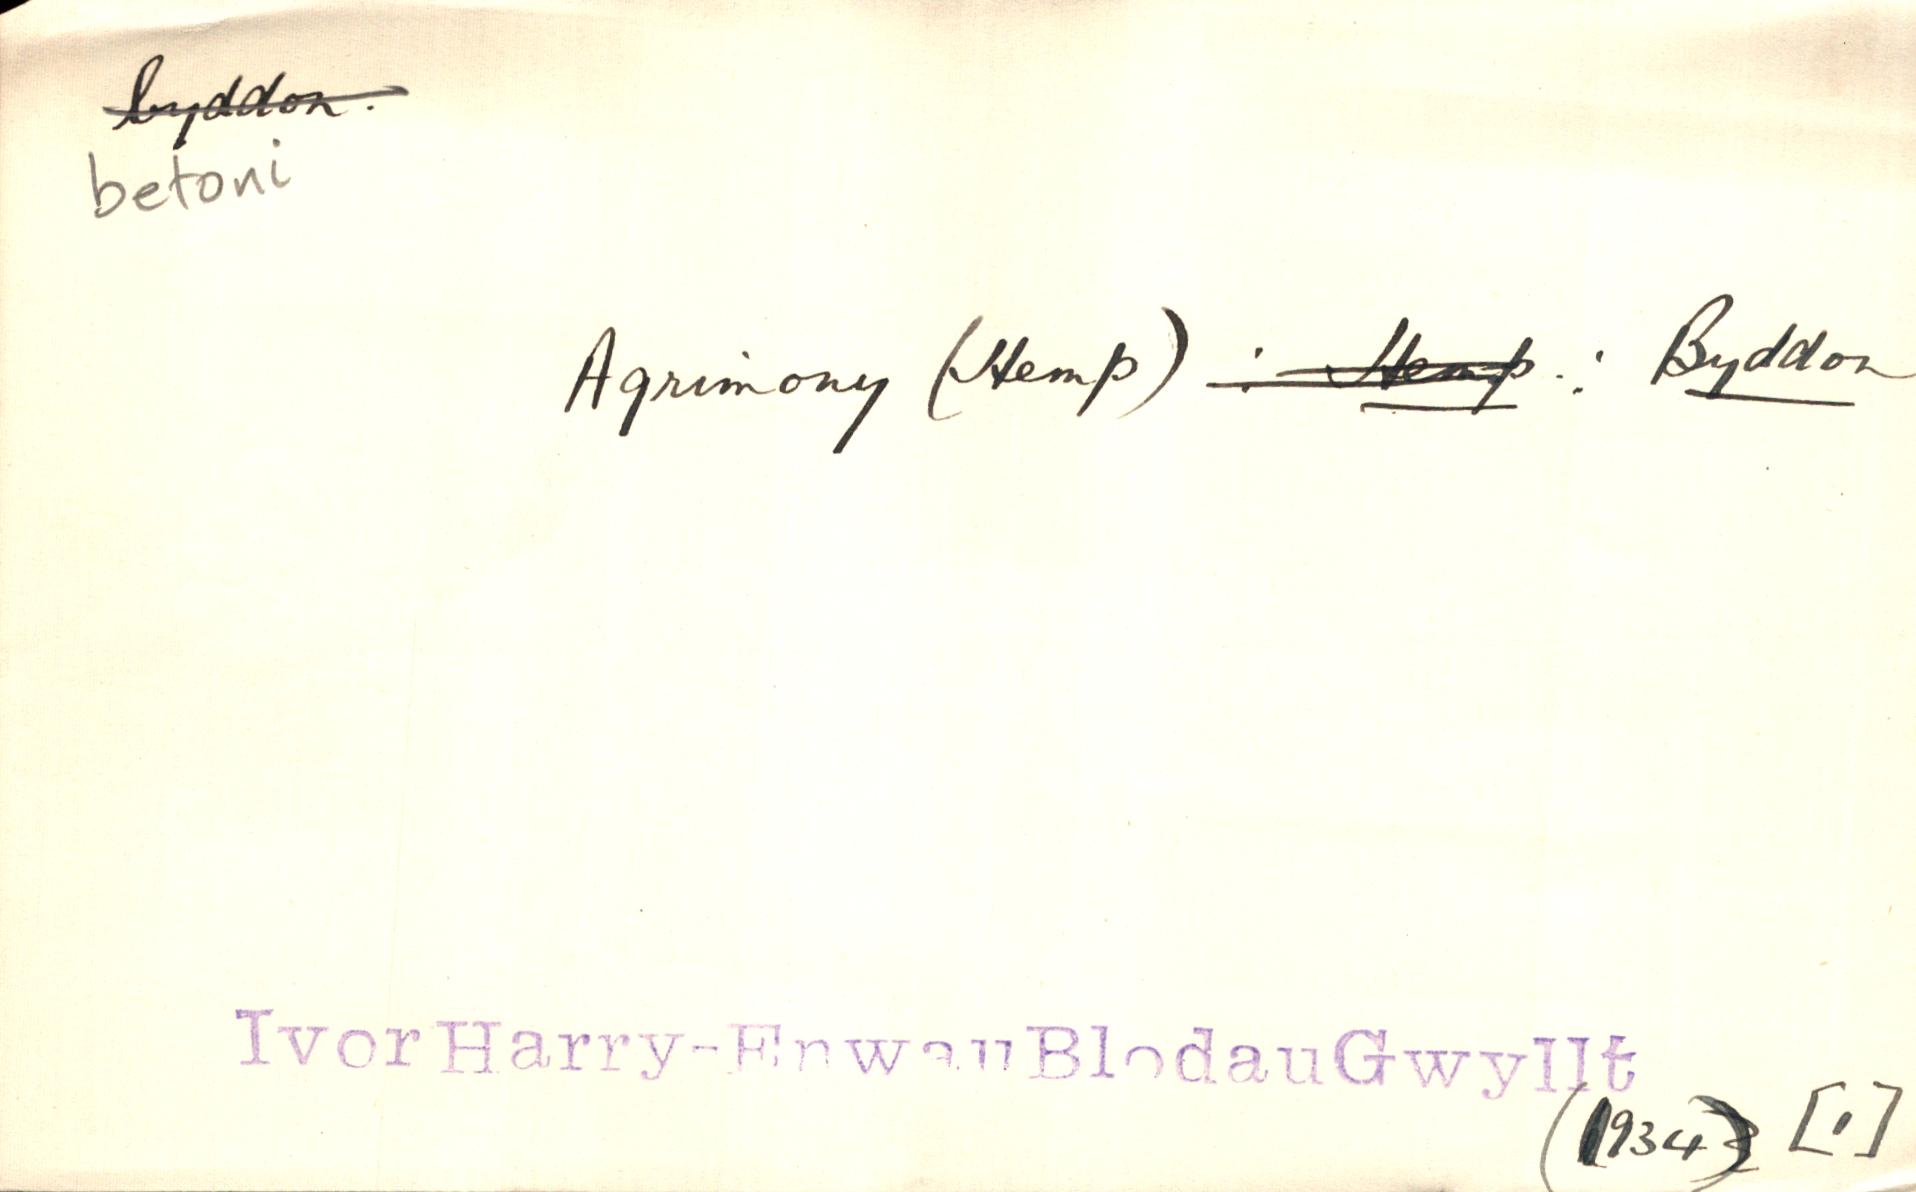 byddon.
betoni
Agrimony (Hemp) : Hemp . : Byddon
Ivor Harry-Enwau Blodau Gwyllt
(1934) [1]